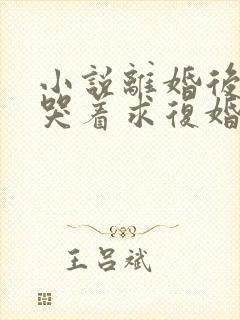 小說離婚後
哭着求復婚
王呂斌